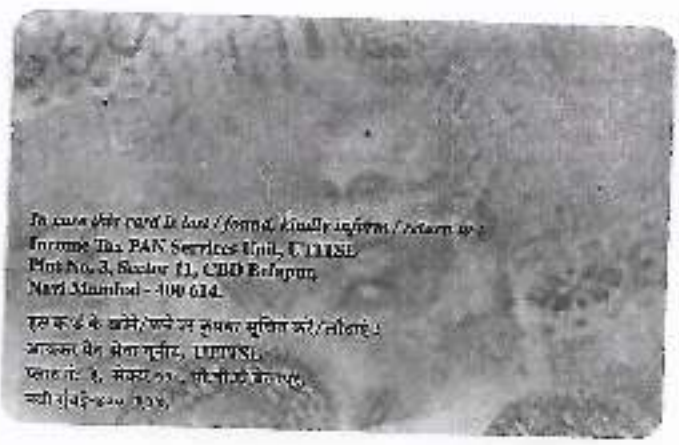 In case this card is lost / found, kindly inform / return to :
Income Tax PAN Services Unit, UTITSL
Plot No. 3, Sector 11, CBD Belapur,
Navi Mumbai - 400 614.
इस कार्ड के खोने/पाने पर कृपया सूचित करें/लौटाएं :
आयकर पैन सेवा यूनीट, UTITSL
प्लाट नं: ३, सेक्टर ११, सी.बी.डी.बेलापुर,
नवी मुंबई-४०० ६१४.